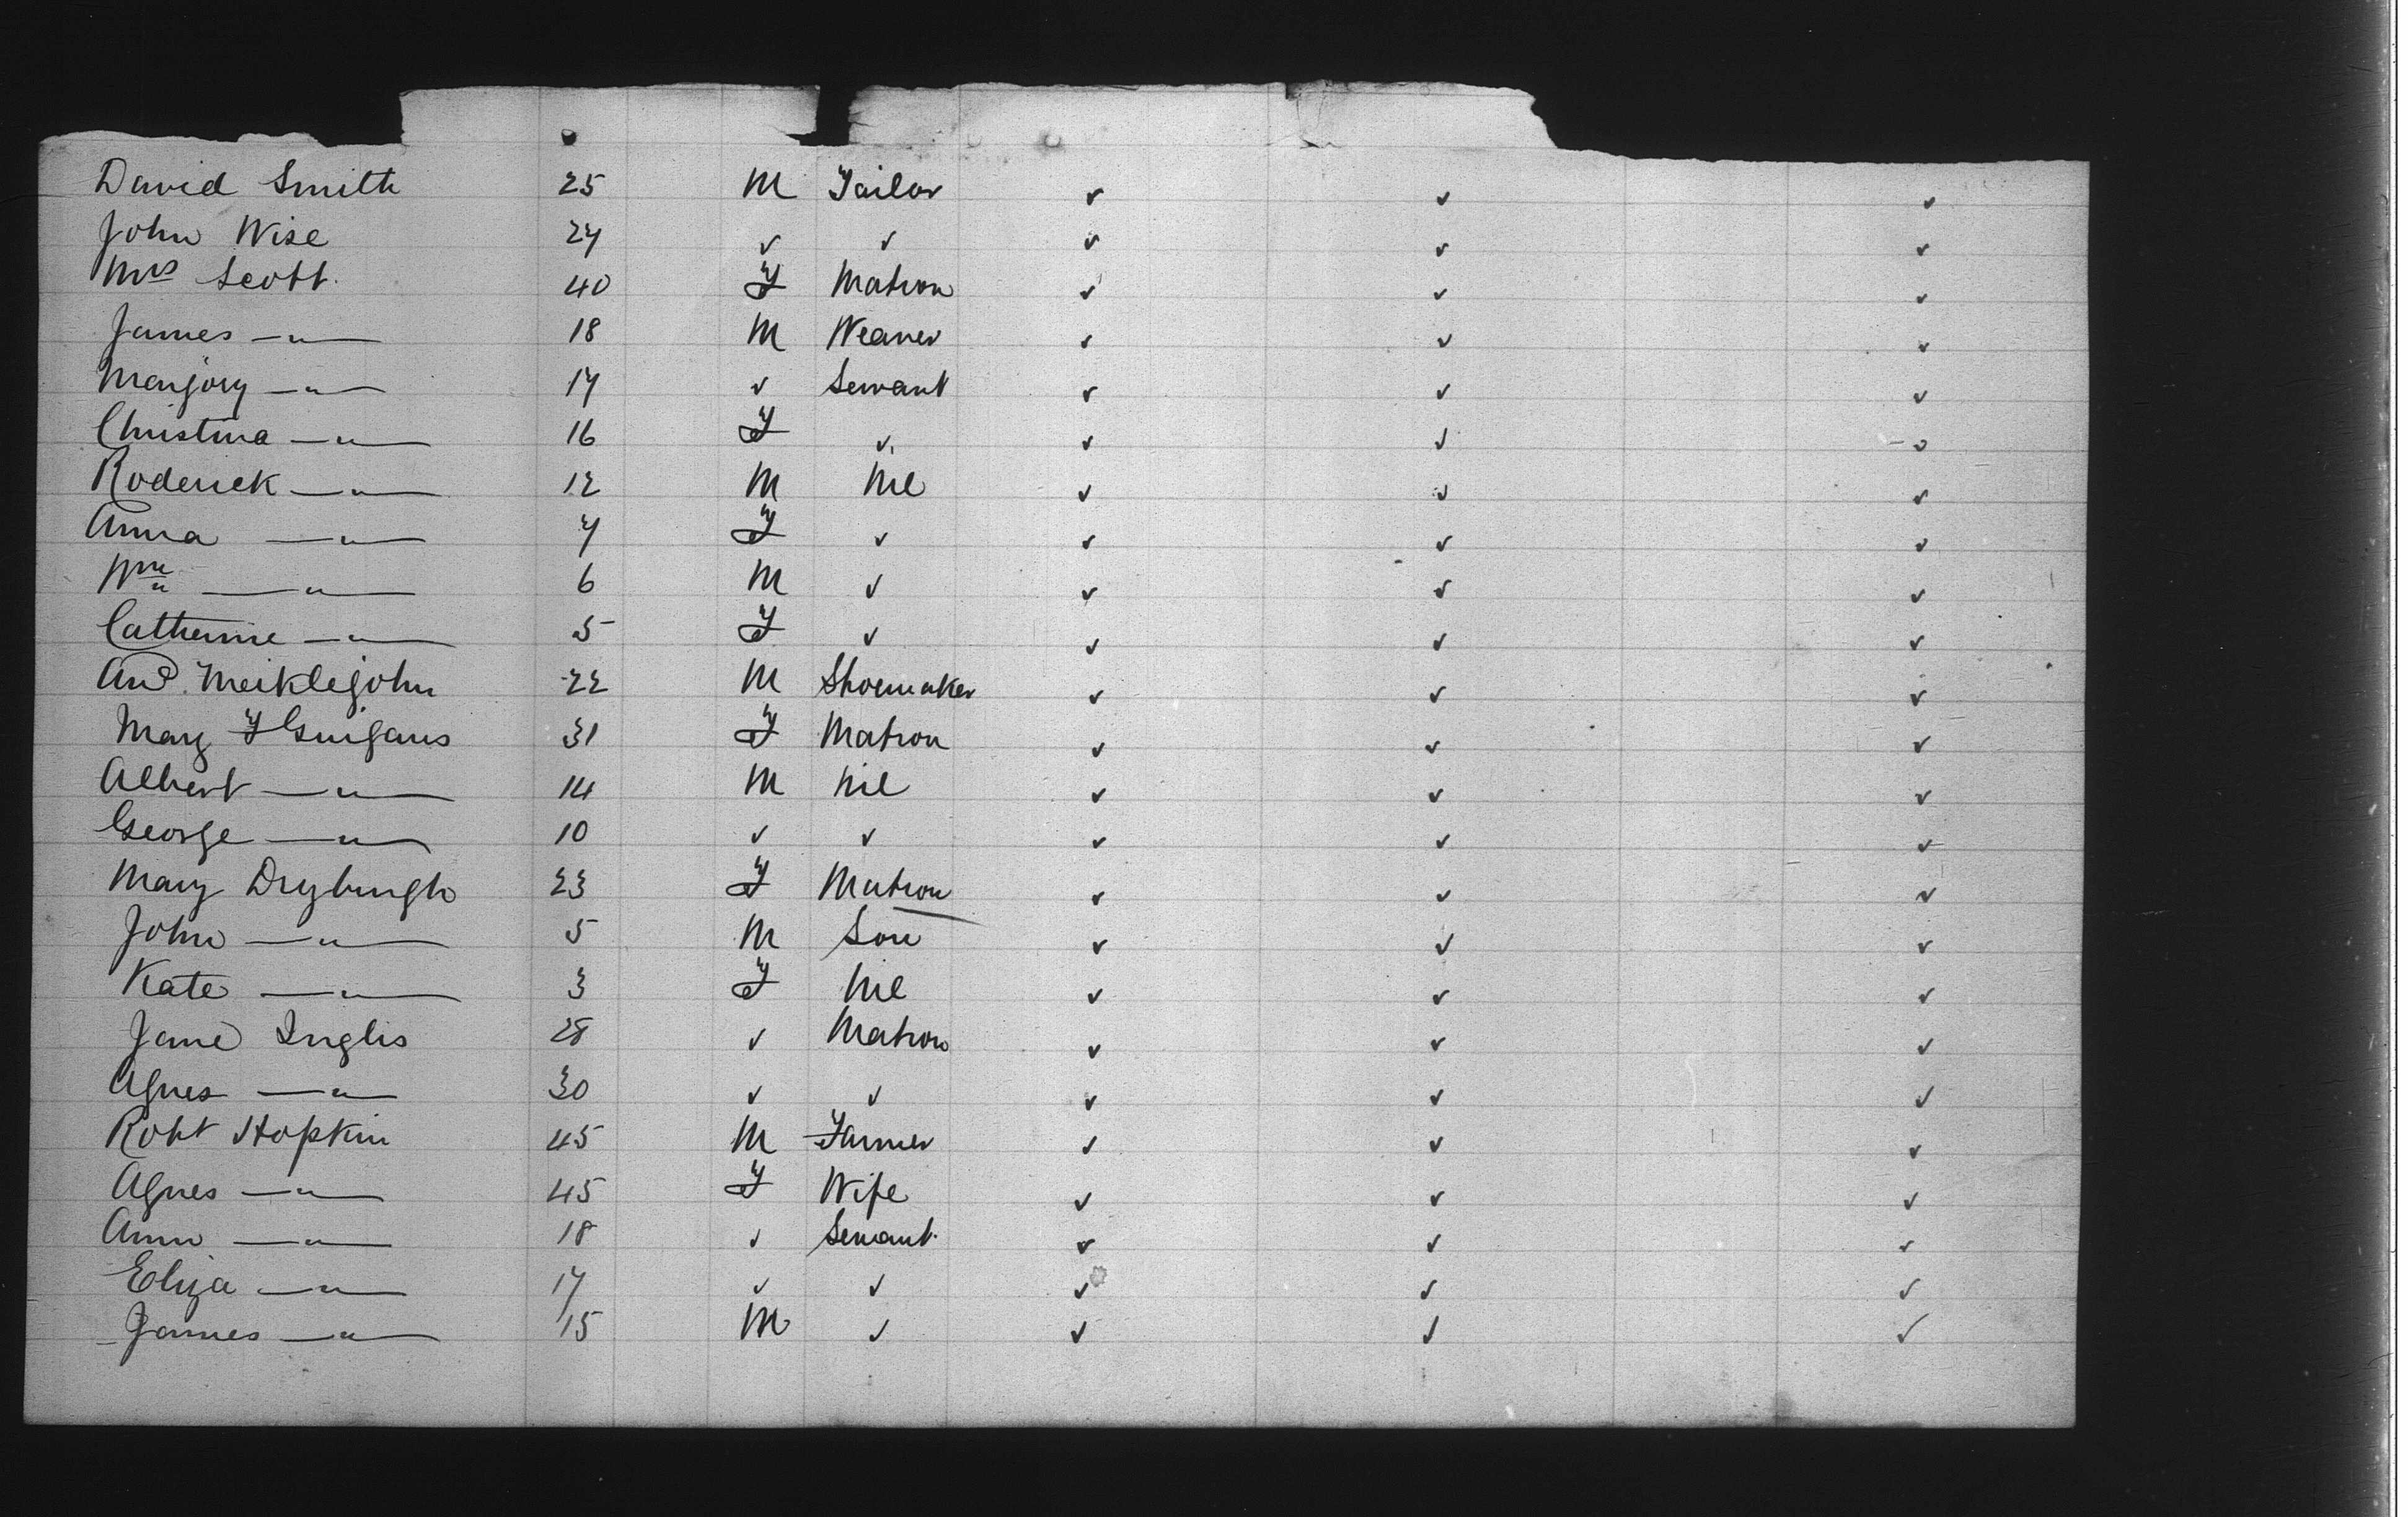 David Smith 25 M Tailor ✓ ✓ ✓
John Wise 24 ✓ ✓ ✓ ✓ ✓
Mrs Scott 40 F Matron ✓ ✓ ✓
James —"— 18 M Weaver ✓ ✓ ✓
Marjory —"— 17 ✓ Servant ✓ ✓ ✓
Christina —"— 16 F ✓ ✓ ✓ ✓
Roderick —"— 12 M Nil ✓ ✓ ✓
Anna —"— 7 F ✓ ✓ ✓ ✓
Wm —"— 6 M ✓ ✓ ✓ ✓
Catherine —"— 5 F ✓ ✓ ✓ ✓
And. Meiklejohn 22 M Shoemaker ✓ ✓ ✓
Mary 31 F Matron ✓ ✓ ✓
Albert —"— 14 M Nil ✓ ✓ ✓
George —"— 10 ✓ ✓ ✓ ✓ ✓
Mary Dryburgh 23 F Matron ✓ ✓ ✓
John —"— 5 M Son ✓ ✓ ✓
Kate —"— 3 F Nil ✓ ✓ ✓
Jane Inglis 28 ✓ Matron ✓ ✓ ✓
Agnes —"— 30 ✓ ✓ ✓ ✓ ✓
Robt Hopkin 45 M Farmer ✓ ✓ ✓
Agnes —"— 45 F Wife ✓ ✓ ✓
Ann —"— 18 ✓ Servant ✓ ✓ ✓
Eliza —"— 17 ✓ ✓ ✓ ✓ ✓
James —"— 15 M ✓ ✓ ✓ ✓